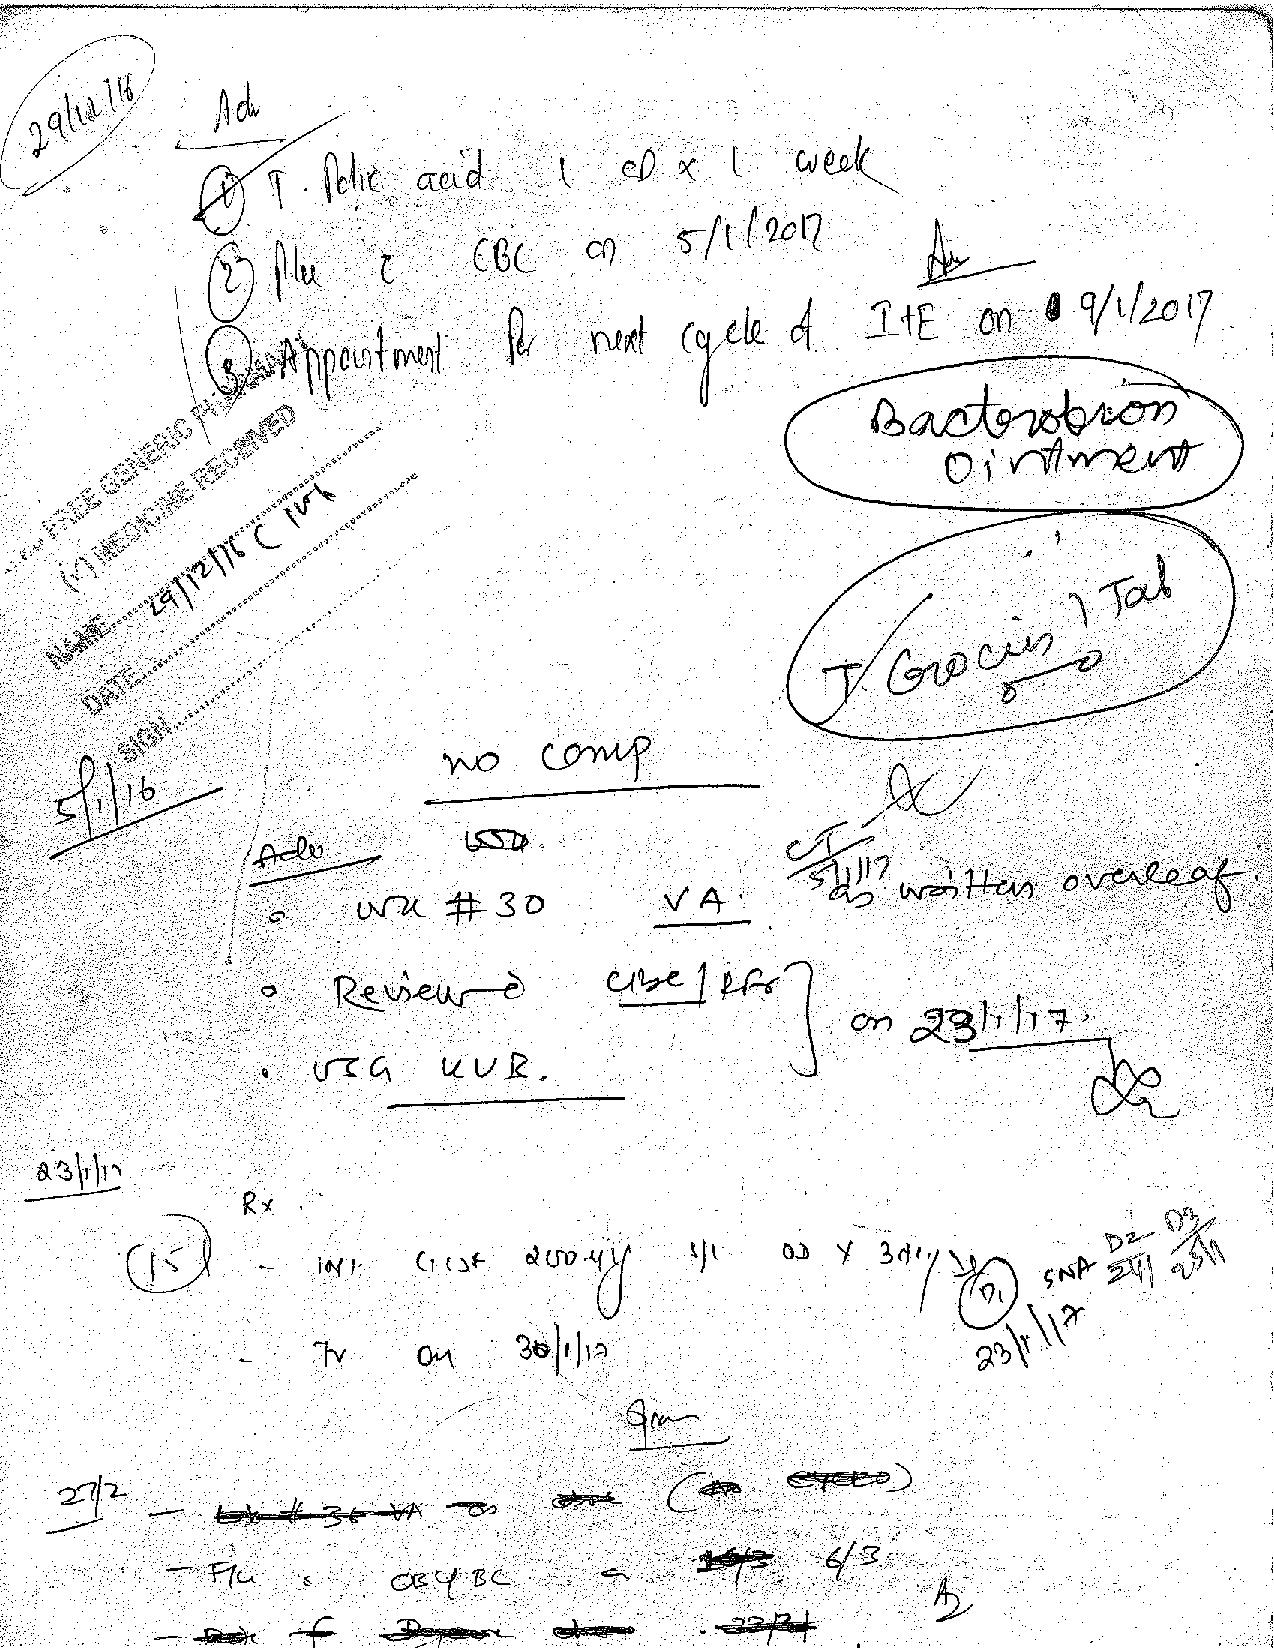 29/12/16
Adv
① T. Folic acid 1 OD x 1 week
② F/u c̄ CBC on 5/1/2017
③ Appointment for next cycle of I+E on 9/1/2017
Bacterobion
Ointment
FREE GENERIC
(✓) MEDICINE RECEIVED
NAME
29/12/16
DATE
SIGN
T. Crocin 1 Tab
5/1/16
no comp
Adv
CT
5/1/17
WK # 30 VA as written overleaf.
Review c̄ CBC/RFT
on 23/1/17.
USG KUB.
23/1/17
Rx
15
- INJ GCSF 200 S/C OD x 3 day
D1 SNA D2 D3
23/1/17 24/1 25/1
- on 30/1/17
27/2
- # 36 VA
- F/u CBC on 6/3